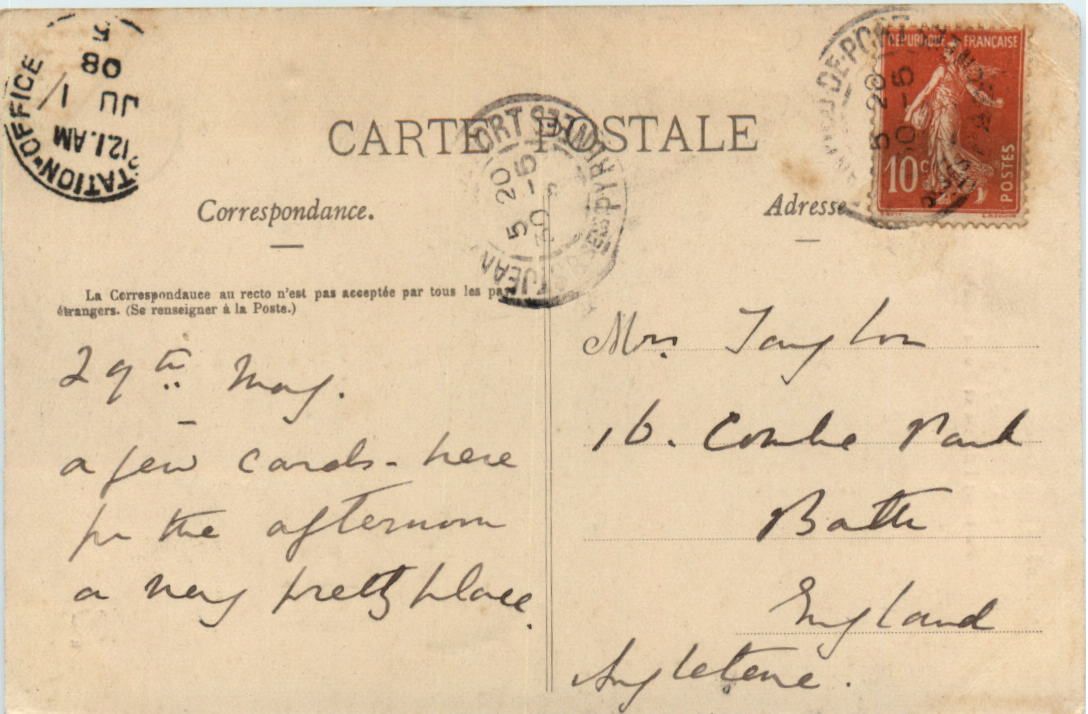 CARTE POSTALE
Correspondance.
La Correspondance au recto n'est pas acceptée par tous les pa
étrangers. (Se renseigner à la Poste.)
29th May.
a few cards - here
for the afternoon
a very pretty place.
Adresse
Mrs Taylor
16. Combe Park
Bath
England
Angleterre.
REPUBLIQUE FRANÇAISE
10c
POSTES
STATION OFFICE
12.1.AM
JU 1
08
ST JEAN PIED DE PORT
5 20
30 -5
BSES PYRENEES
DE PORT
5 20
30 -5